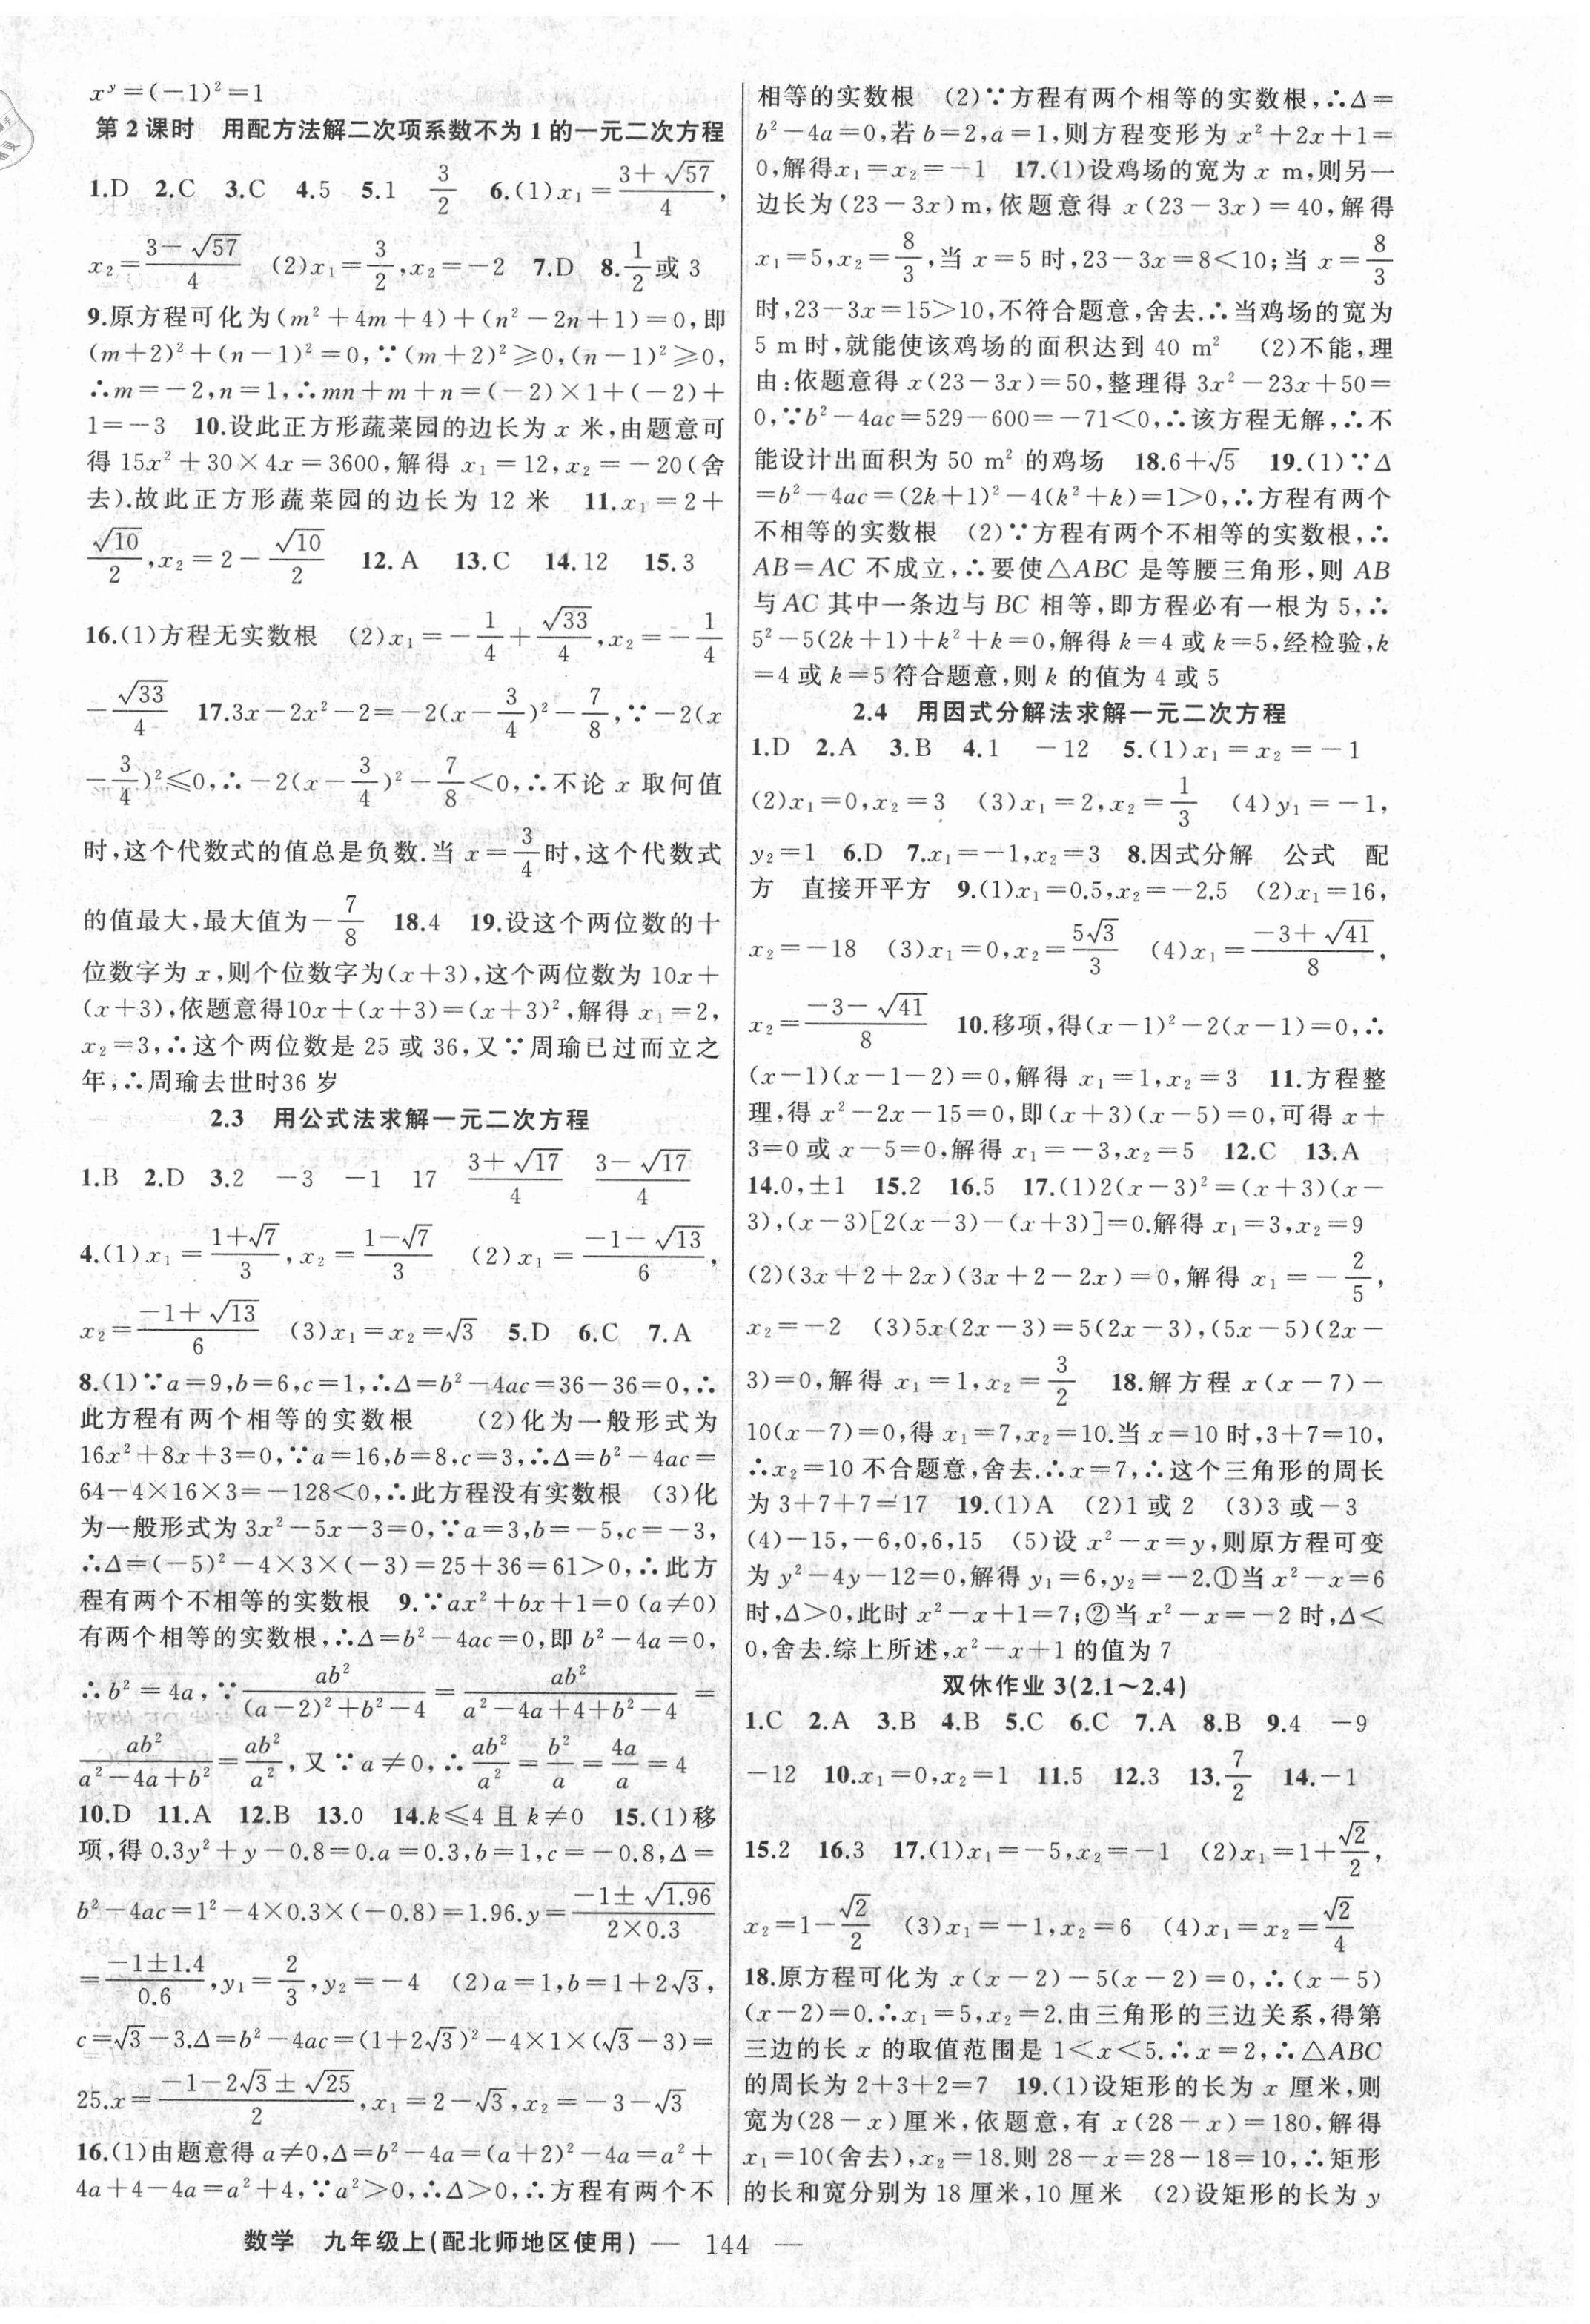 x^y=(-1)²=1
第2课时　用配方法解二次项系数不为1的一元二次方程
1.D　2.C　3.C　4.5　5.1　3/2　6.(1)x₁=(3+√57)/4,
x₂=(3-√57)/4　(2)x₁=3/2,x₂=-2　7.D　8.1/2或3
9.原方程可化为(m²+4m+4)+(n²-2n+1)=0,即
(m+2)²+(n-1)²=0,∵(m+2)²≥0,(n-1)²≥0,
∴m=-2,n=1,∴mn+m+n=(-2)×1+(-2)+
1=-3　10.设此正方形蔬菜园的边长为x米,由题意可
得15x²+30×4x=3600,解得x₁=12,x₂=-20(舍
去).故此正方形蔬菜园的边长为12米　11.x₁=2+
√10/2,x₂=2-√10/2　12.A　13.C　14.12　15.3
16.(1)方程无实数根　(2)x₁=-1/4+√33/4,x₂=-1/4
-√33/4　17.3x-2x²-2=-2(x-3/4)²-7/8,∵-2(x
-3/4)²≤0,∴-2(x-3/4)²-7/8<0,∴不论x取何值
时,这个代数式的值总是负数.当x=3/4时,这个代数式
的值最大,最大值为-7/8　18.4　19.设这个两位数的十
位数字为x,则个位数字为(x+3),这个两位数为10x+
(x+3),依题意得10x+(x+3)=(x+3)²,解得x₁=2,
x₂=3,∴这个两位数是25或36,又∵周瑜已过而立之
年,∴周瑜去世时36岁
2.3　用公式法求解一元二次方程
1.B　2.D　3.2　-3　-1　17　(3+√17)/4　(3-√17)/4
4.(1)x₁=(1+√7)/3,x₂=(1-√7)/3　(2)x₁=(-1-√13)/6,
x₂=(-1+√13)/6　(3)x₁=x₂=√3　5.D　6.C　7.A
8.(1)∵a=9,b=6,c=1,∴Δ=b²-4ac=36-36=0,∴
此方程有两个相等的实数根　(2)化为一般形式为
16x²+8x+3=0,∵a=16,b=8,c=3,∴Δ=b²-4ac=
64-4×16×3=-128<0,∴此方程没有实数根　(3)化
为一般形式为3x²-5x-3=0,∵a=3,b=-5,c=-3,
∴Δ=(-5)²-4×3×(-3)=25+36=61>0,∴此方
程有两个不相等的实数根　9.∵ax²+bx+1=0(a≠0)
有两个相等的实数根,∴Δ=b²-4ac=0,即b²-4a=0,
∴b²=4a,∵ab²/((a-2)²+b²-4)=ab²/(a²-4a+4+b²-4)=
ab²/(a²-4a+b²)=ab²/a²,又∵a≠0,∴ab²/a²=b²/a=4a/a=4
10.D　11.A　12.B　13.0　14.k≤4且k≠0　15.(1)移
项,得0.3y²+y-0.8=0.a=0.3,b=1,c=-0.8,Δ=
b²-4ac=1²-4×0.3×(-0.8)=1.96.y=(-1±√1.96)/(2×0.3)
=(-1±1.4)/0.6,y₁=2/3,y₂=-4　(2)a=1,b=1+2√3,
c=√3-3.Δ=b²-4ac=(1+2√3)²-4×1×(√3-3)=
25.x=(-1-2√3±√25)/2,x₁=2-√3,x₂=-3-√3
16.(1)由题意得a≠0,Δ=b²-4a=(a+2)²-4a=a²+
4a+4-4a=a²+4,∵a²>0,∴Δ>0,∴方程有两个不
相等的实数根　(2)∵方程有两个相等的实数根,∴Δ=
b²-4a=0,若b=2,a=1,则方程变形为x²+2x+1=
0,解得x₁=x₂=-1　17.(1)设鸡场的宽为x m,则另一
边长为(23-3x)m,依题意得x(23-3x)=40,解得
x₁=5,x₂=8/3,当x=5时,23-3x=8<10;当x=8/3
时,23-3x=15>10,不符合题意,舍去.∴当鸡场的宽为
5 m时,就能使该鸡场的面积达到40 m²　(2)不能,理
由:依题意得x(23-3x)=50,整理得3x²-23x+50=
0,∵b²-4ac=529-600=-71<0,∴该方程无解,∴不
能设计出面积为50 m²的鸡场　18.6+√5　19.(1)∵Δ
=b²-4ac=(2k+1)²-4(k²+k)=1>0,∴方程有两个
不相等的实数根　(2)∵方程有两个不相等的实数根,∴
AB=AC不成立,∴要使△ABC是等腰三角形,则AB
与AC其中一条边与BC相等,即方程必有一根为5,∴
5²-5(2k+1)+k²+k=0,解得k=4或k=5,经检验,k
=4或k=5符合题意,则k的值为4或5
2.4　用因式分解法求解一元二次方程
1.D　2.A　3.B　4.1　-12　5.(1)x₁=x₂=-1
(2)x₁=0,x₂=3　(3)x₁=2,x₂=1/3　(4)y₁=-1,
y₂=1　6.D　7.x₁=-1,x₂=3　8.因式分解　公式　配
方　直接开平方　9.(1)x₁=0.5,x₂=-2.5　(2)x₁=16,
x₂=-18　(3)x₁=0,x₂=5√3/3　(4)x₁=(-3+√41)/8,
x₂=(-3-√41)/8　10.移项,得(x-1)²-2(x-1)=0,∴
(x-1)(x-1-2)=0,解得x₁=1,x₂=3　11.方程整
理,得x²-2x-15=0,即(x+3)(x-5)=0,可得x+
3=0或x-5=0,解得x₁=-3,x₂=5　12.C　13.A
14.0,±1　15.2　16.5　17.(1)2(x-3)²=(x+3)(x-
3),(x-3)[2(x-3)-(x+3)]=0.解得x₁=3,x₂=9
(2)(3x+2+2x)(3x+2-2x)=0,解得x₁=-2/5,
x₂=-2　(3)5x(2x-3)=5(2x-3),(5x-5)(2x-
3)=0,解得x₁=1,x₂=3/2　18.解方程x(x-7)-
10(x-7)=0,得x₁=7,x₂=10.当x=10时,3+7=10,
∴x₂=10不合题意,舍去.∴x=7,∴这个三角形的周长
为3+7+7=17　19.(1)A　(2)1或2　(3)3或-3
(4)-15,-6,0,6,15　(5)设x²-x=y,则原方程可变
为y²-4y-12=0,解得y₁=6,y₂=-2.①当x²-x=6
时,Δ>0,此时x²-x+1=7;②当x²-x=-2时,Δ<
0,舍去.综上所述,x²-x+1的值为7
双休作业3(2.1~2.4)
1.C　2.A　3.B　4.B　5.C　6.C　7.A　8.B　9.4　-9
-12　10.x₁=0,x₂=1　11.5　12.3　13.7/2　14.-1
15.2　16.3　17.(1)x₁=-5,x₂=-1　(2)x₁=1+√2/2,
x₂=1-√2/2　(3)x₁=-1,x₂=6　(4)x₁=x₂=√2/4
18.原方程可化为x(x-2)-5(x-2)=0,∴(x-5)
(x-2)=0.∴x₁=5,x₂=2.由三角形的三边关系,得第
三边的长x的取值范围是1<x<5.∴x=2,∴△ABC
的周长为2+3+2=7　19.(1)设矩形的长为x厘米,则
宽为(28-x)厘米,依题意,有x(28-x)=180,解得
x₁=10(舍去),x₂=18.则28-x=28-18=10,∴矩形
的长和宽分别为18厘米,10厘米　(2)设矩形的长为y
数学　九年级上(配北师地区使用)— 144 —